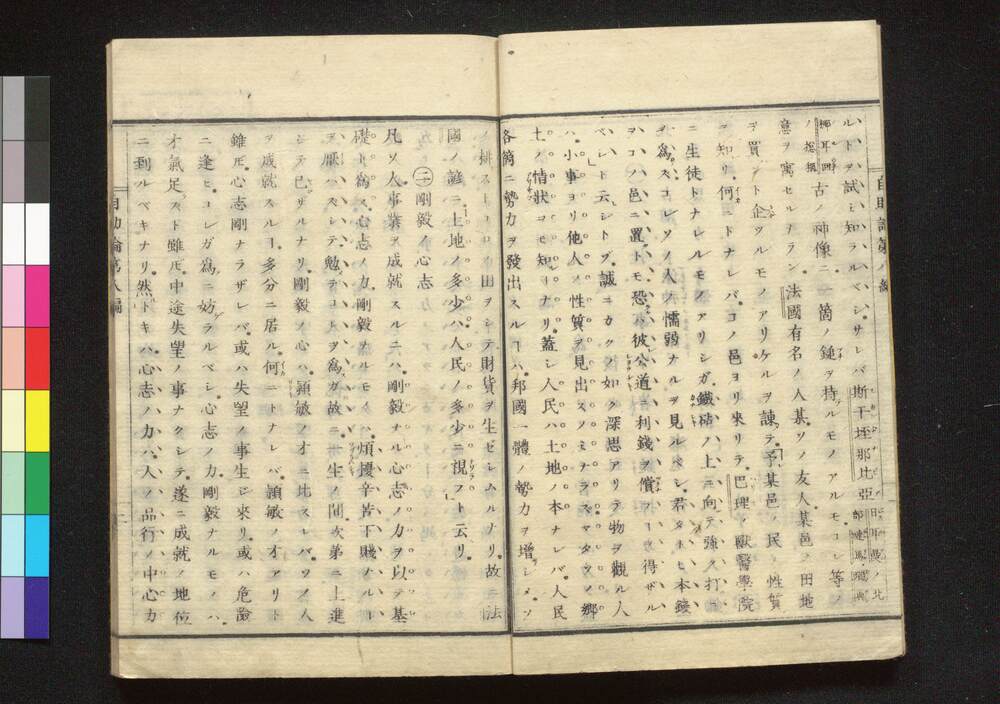 ルヿヲ試ミ知ラルベシ。サレバ斯干垤那比亞日耳曼ノ北
古ノ神像ニ一箇ノ鎚ヲ持ルモノアルモ、コレ等ノ
意ヲ寓セルナラン法國有名ノ人某ソノ友人某邑ノ田地
ヲ買ント企ツルモノアリケルヲ諫テ予某邑ノ民ノ性質
ヲ知リ何ニトナレバコノ邑ヨリ來リテ巴理ノ獸醫學院
ニ生徒トナレルモノアリシガ鐵砧ノ上ニ向テ強ク打ヿヲ
為ズコレソノ人ノ懦弱ナルヲ見ルベシ君タトヒ本錢
ヲコノ邑ニ置トモ恐ハ彼公道ニ利錢ヲ償フヿヲ得ザル
ベシト云シトゾ誠ニカクノ如ク深思アリテ物ヲ觀ル人
ハ小事ヨリ他人ノ性質ヲ見出スノミナラズマタソノ鄉
土ノ情狀ヲモ知ヿナリ蓋シ人民ハ土地ノ本ナレバ人民
各箇ニ勢力ヲ發出スルヿハ邦國一體ノ勢力ヲ增シメソ
ノ耕ストコロノ田ヲシテ財貨ヲ生ゼシムルナリ故ニ法
國ノ諺ニ土地ノ多少ハ人民ノ多少ニ視フト云リ
㊁剛毅ノ心志
凡ソ人事業ヲ成就スルニハ剛毅ナル心志ノ力ヲ以テ基
礎ト為ス心志ノ力剛毅ナルモノハ煩擾辛苦下賤ナルヿ
ヲ厭ハズシテ勉テコレヲ為ガ故ニ一生ノ間次第ニ上進
シテ已ザルナリ剛毅ノ心ハ穎敏ノ才ニ比スレバソノ人
ヲ成就スルヿ多分ニ居ル何ニトナレバ穎敏ノ才アリト
雖𪜈心志剛ナラザレバ或ハ失望ノ事生ジ來リ或ハ危險
ニ逢ヒコレガ為ニ妨ラルベシ心志ノ力剛毅ナルモノハ
才氣足ズト雖𪜈中途失望ノ事ナクシテ遂ニ成就ノ地位
ニ到ルベキナリ然ルトキハ心志ノ力ハ人ノ品行ノ中心力
自助論第八編